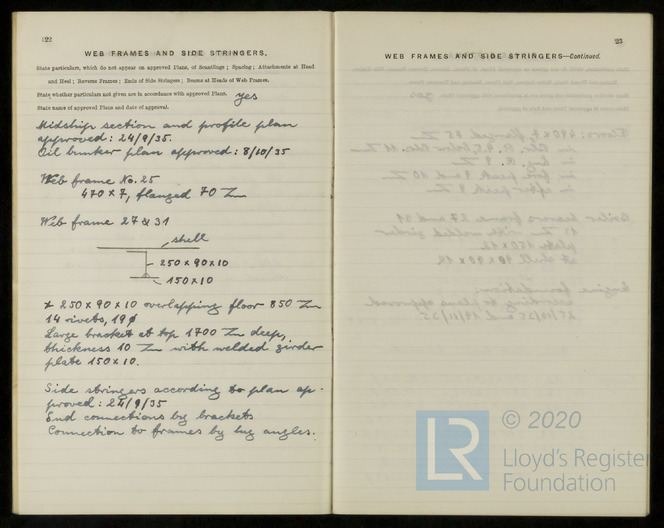 122
WEB FRAMES AND SIDE STRINGERS.
State particulars, which do not appear on approved Plans, of Scantlings ; Spacing ; Attachments at Head
and Heel ; Reverse Frames ; Ends of Side Stringers ; Beams at Heads of Web Frames.
State whether particulars not given are in accordance with approved Plans. yes
State name of approved Plans and date of approval.
Midship section and profile plan
approved: 24/9/35.
Oil bunker plan approved: 8/10/35
Web frame No. 25
470 x 7, flanged 70 m/m
Web frame 27 & 31
shell
250 x 90 x 10
150 x 10
250 x 90 x 10 overlapping floor 850 m/m
14 rivets, 19 ø
Large bracket at top 1700 m/m deep,
thickness 10 m/m with welded girder
plate 150 x 10.
Side stringers according to plan ap-
proved: 24/9/35
End connections by brackets
Connection to frames by lug angles.
23
WEB FRAMES AND SIDE STRINGERS—Continued.
© 2020
LR
Lloyd's Register
Foundation